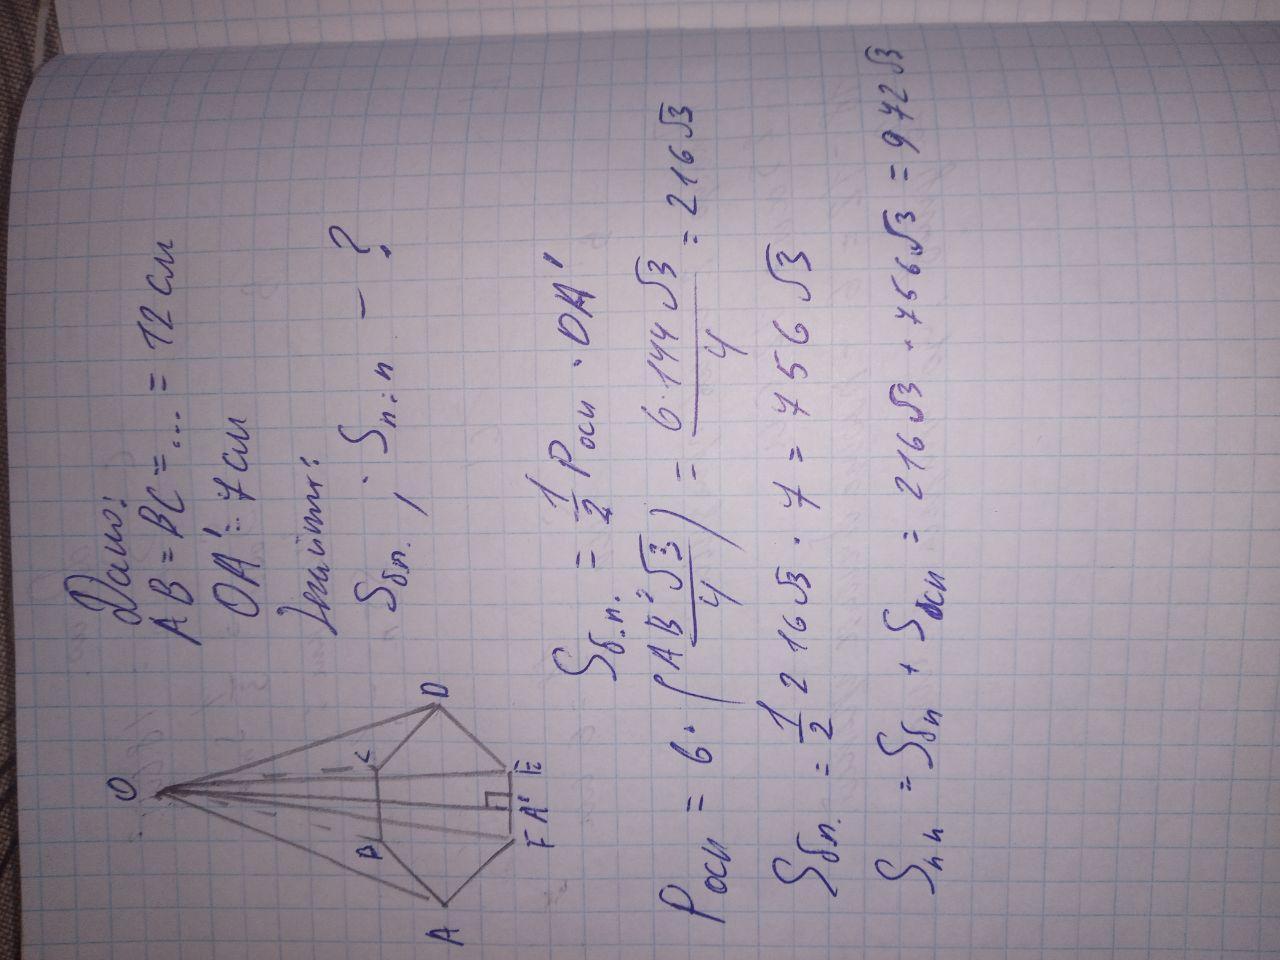 Дано:
AB = BC = ... = 12 см
OA' = 7 см
Найти:
Sб.п. ; Sп.п – ?
O
B
C
A
D
F A' E
Sб.п. = 1/2 Pосн · OA'
Pосн = 6 · (AB²√3/4) = 6·144√3/4 = 216√3
Sбп. = 1/2 216√3 · 7 = 756√3
Sпп = Sбп + Sосн = 216√3 · 756√3 = 972√3